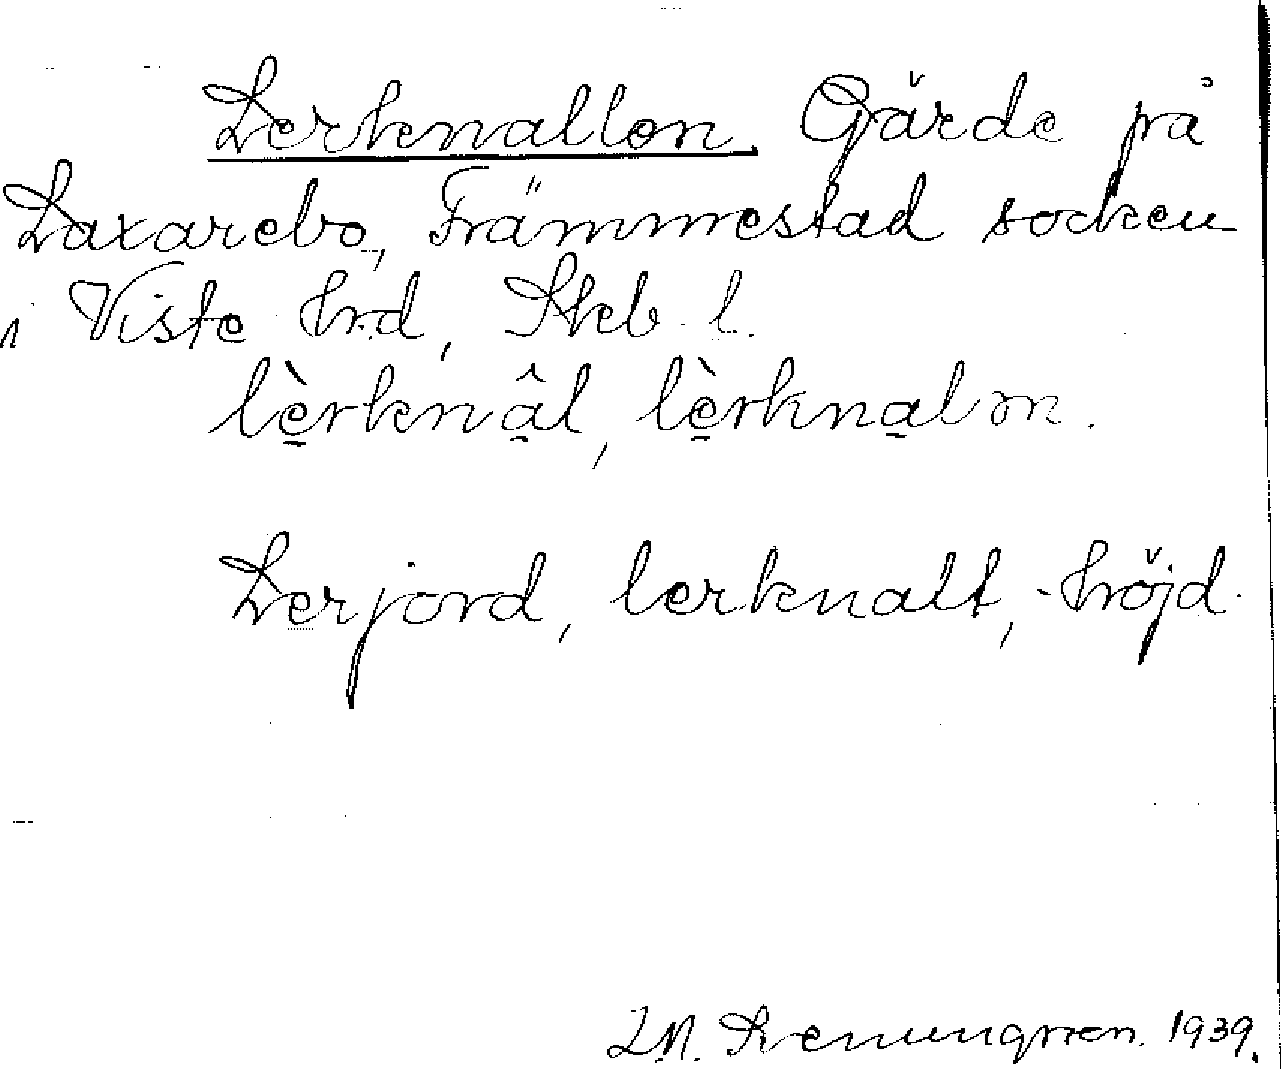 Lerknallen. Gärde på
Laxarebo, Främmestad socken
i Viste hrd, Skb. l.
lèrknâl, lèrknalən.
Lerjord, lerknalt, -höjd.
1939.